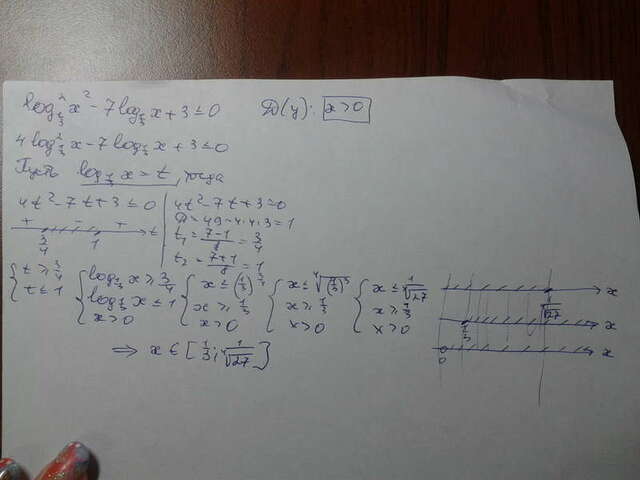 log²_{1/3} x² - 7log_{1/3} x + 3 ≤ 0    D(y): x > 0
4log²_{1/3} x - 7log_{1/3} x + 3 ≤ 0
Пусть log_{1/3} x = t, тогда
4t² - 7t + 3 ≤ 0 | 4t² - 7t + 3 = 0
+ - + t | D = 49 - 4·4·3 = 1
3/4 1 | t₁ = (7-1)/8 = 3/4
t₂ = (7+1)/8 = 1
{ t ≥ 3/4
t ≤ 1
{ log_{1/3} x ≥ 3/4
log_{1/3} x ≤ 1
x > 0
{ x ≤ (1/3)^{3/4}
x ≥ 1/3
x > 0
{ x ≤ ⁴√(1/3)³
x ≥ 1/3
x > 0
{ x ≤ 1/⁴√27
x ≥ 1/3
x > 0
1/⁴√27 x
1/3 x
0 x
⇒ x ∈ [1/3; 1/⁴√27]